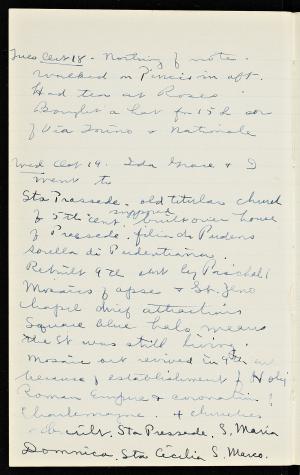 Tues Oct 18 - Nothing of note.
Walked on Pincio in aft.
Had tea at Roses
Bought a hat for 15 L cor
of Via Torino & Nationale
Wed Oct 19. Ida Grace & I
went to
Sta Pressede. old titular church
of 5th cent. supposed built over house
of Pressede. filia di Pudens
sorella di Pudentiana
Rebuilt 9th cent by Paschal I
Mosaics of apse & St. Zeno
chapel chief attractions
Square blue halo means
the St was still living.
Mosaic art revived in 9th cent
because of establishment of Holy
Roman Empire & coronation of
Charlemagne. & churches
rebuilt. Sta Pressede. S. Maria
Domnica, Sta Cecilia S. Marco.